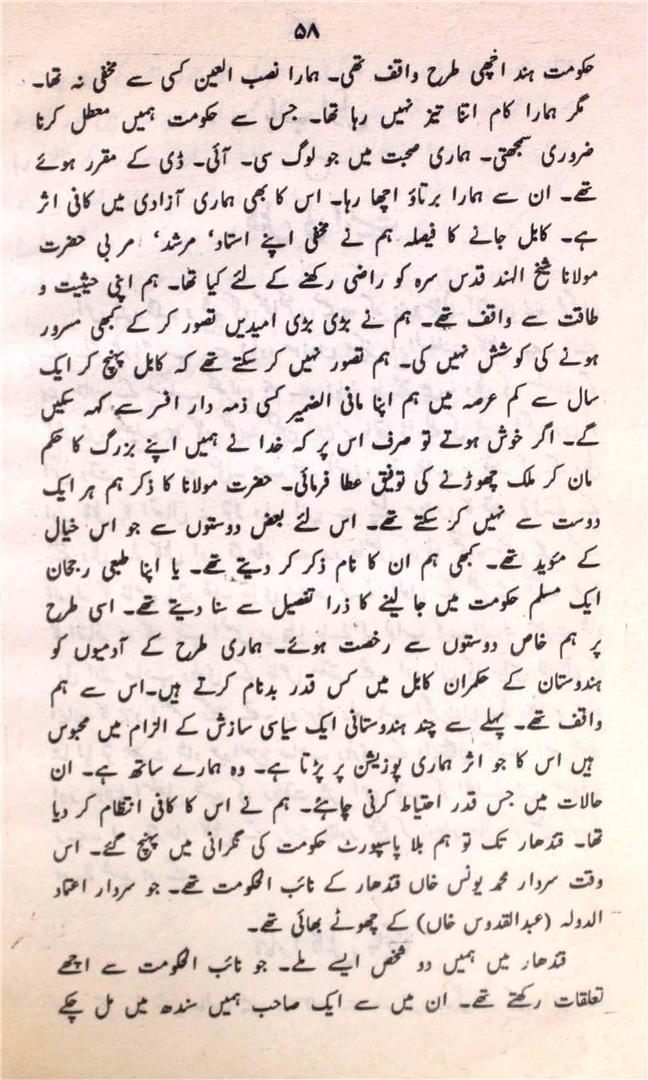 ۵۸
حکومت ہند اچھی طرح واقف تھی۔ ہمارا نصب العین کسی سے مخفی نہ تھا۔
مگر ہمارا کام اتنا تیز نہیں رہا تھا۔ جس سے حکومت ہمیں معطل کرنا
ضروری سمجھتی۔ ہماری صحبت میں جو لوگ سی۔ آئی۔ ڈی کے مقرر ہوئے
تھے۔ ان سے ہمارا برتاؤ اچھا رہا۔ اس کا بھی ہماری آزادی میں کافی اثر
ہے۔ کابل جانے کا فیصلہ ہم نے مخفی اپنے استاد‘ مرشد‘ مربی حضرت
مولانا شیخ الہند قدس سرہ کو راضی رکھنے کے لئے کیا تھا۔ ہم اپنی حیثیت و
طاقت سے واقف تھے۔ ہم نے بڑی بڑی امیدیں تصور کر کے کبھی مسرور
ہونے کی کوشش نہیں کی۔ ہم تصور نہیں کر سکتے تھے کہ کابل پہنچ کر ایک
سال سے کم عرصہ میں ہم اپنا مافی الضمیر کسی ذمہ دار افسر سے کہہ سکیں
گے۔ اگر خوش ہوتے تو صرف اس پر کہ خدا نے ہمیں اپنے بزرگ کا حکم
مان کر ملک چھوڑنے کی توفیق عطا فرمائی۔ حضرت مولانا کا ذکر ہم ہر ایک
دوست سے نہیں کر سکتے تھے۔ اس لئے بعض دوستوں سے جو اس خیال
کے مؤید تھے۔ کبھی ہم ان کا نام ذکر کر دیتے تھے۔ یا اپنا طبعی رجحان
ایک مسلم حکومت میں جا لینے کا ذرا تفصیل سے سنا دیتے تھے۔ اسی طرح
پر ہم خاص دوستوں سے رخصت ہوئے۔ ہماری طرح کے آدمیوں کو
ہندوستان کے حکمران کابل میں کس قدر بدنام کرتے ہیں۔اس سے ہم
واقف تھے۔ پہلے سے چند ہندوستانی ایک سیاسی سازش کے الزام میں محبوس
ہیں اس کا جو اثر ہماری پوزیشن پر پڑتا ہے۔ وہ ہمارے ساتھ ہے۔ ان
حالات میں جس قدر احتیاط کرنی چاہئے۔ ہم نے اس کا کافی انتظام کر دیا
تھا۔ قندھار تک تو ہم بلا پاسپورٹ حکومت کی نگرانی میں پہنچ گئے۔ اس
وقت سردار محمد یونس خاں قندھار کے نائب الحکومت تھے۔ جو سردار اعتماد
الدولہ (عبدالقدوس خاں) کے چھوٹے بھائی تھے۔
قندھار میں ہمیں دو شخص ایسے ملے۔ جو نائب الحکومت سے اچھے
تعلقات رکھتے تھے۔ ان میں سے ایک صاحب ہمیں سندھ میں مل چکے